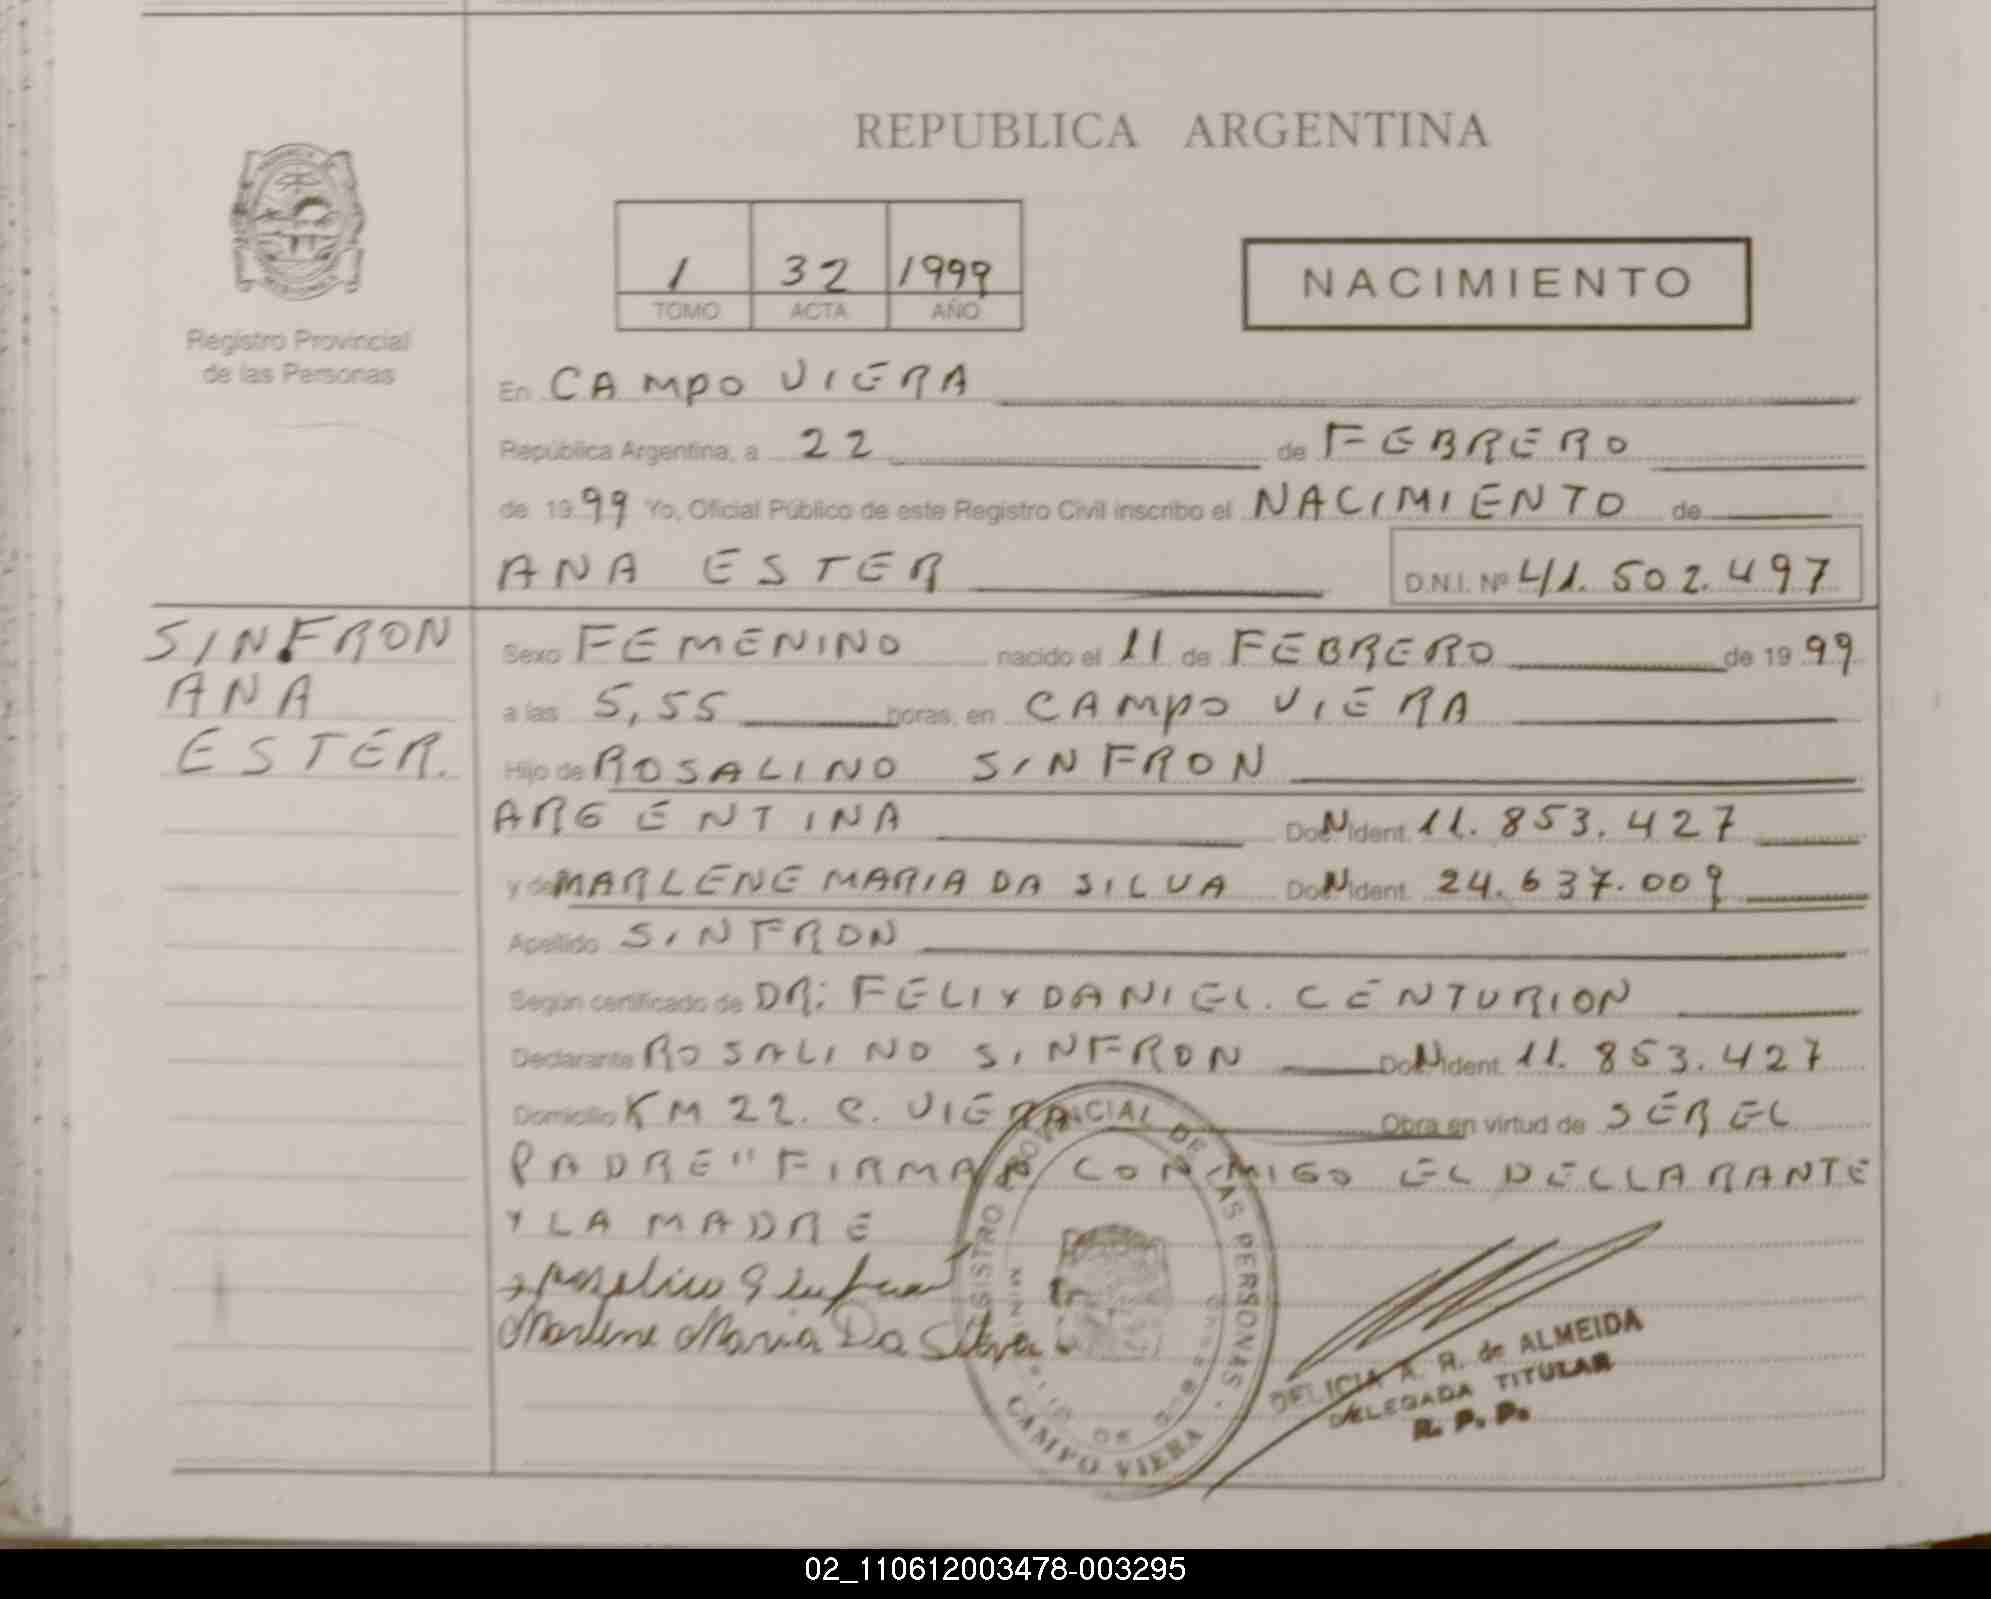 REPUBLICA ARGENTINA
Registro Provincial
de las Personas
1 32 1999
TOMO ACTA AÑO
NACIMIENTO
En CAMPO VIERA
República Argentina, a 22 de FEBRERO
de 1999 Yo, Oficial Público de este Registro Civil inscribo el NACIMIENTO de
ANA ESTER D.N.I. Nº 41.502.497
SINFRON
ANA
ESTER.
Sexo FEMENINO nacido el 11 de FEBRERO de 1999
a las 5,55 horas, en CAMPO VIERA
Hijo de ROSALINO SINFRON
ARGENTINA Doc. N Ident. 11.853.427
y de MARLENE MARIA DA SILVA Doc. N Ident. 24.637.009
Apellido SINFRON
Según certificado de DR: FELIX DANIEL. CENTURION
Declarante ROSALINO SINFRON Doc. N Ident. 11.853.427
Domicilio KM 22. C. VIERA Obra en virtud de SER EL
PADRE" FIRMAN CONMIGO EL DECLARANTE
Y LA MADRE
Marlene Maria Da Silva
REGISTRO PROVINCIAL DE LAS PERSONAS
CAMPO VIERA
DELICIA A. R. de ALMEIDA
DELEGADA TITULAR
R. P. P.
02_110612003478-003295